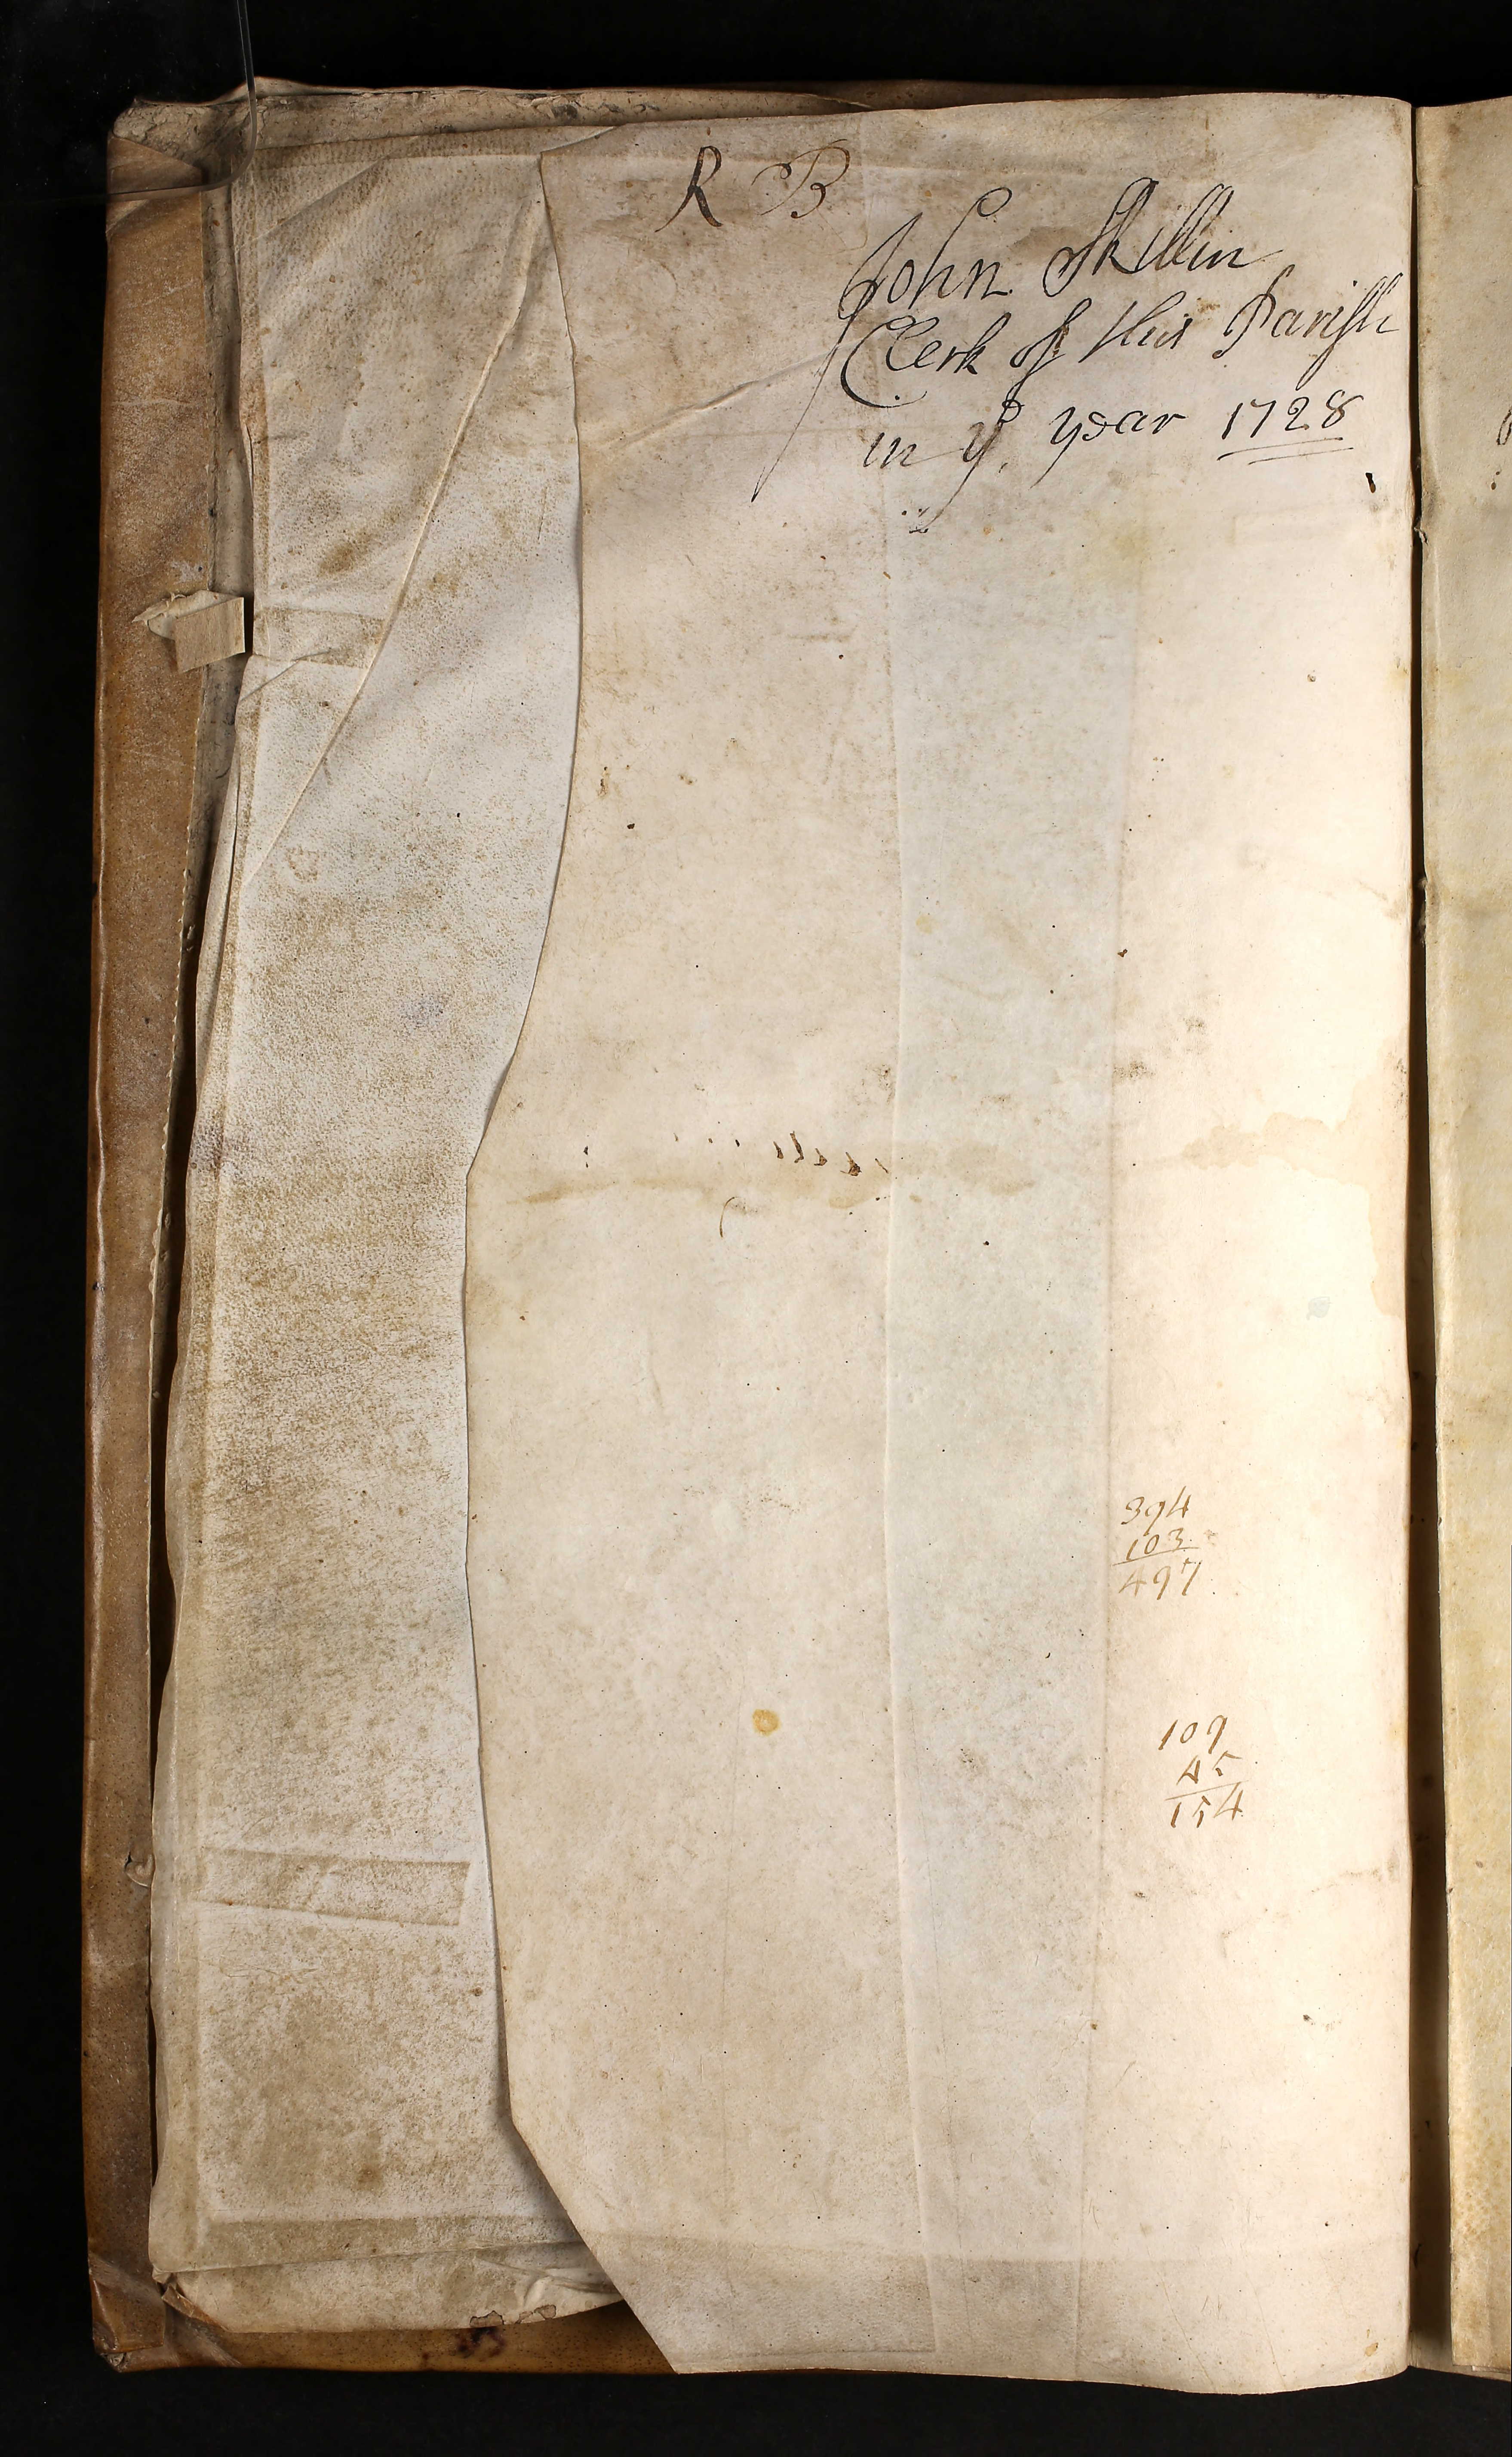 R B
John Skillin
Clerk of this Parish
in yͤ year 1728
394
103
497
109
45
154